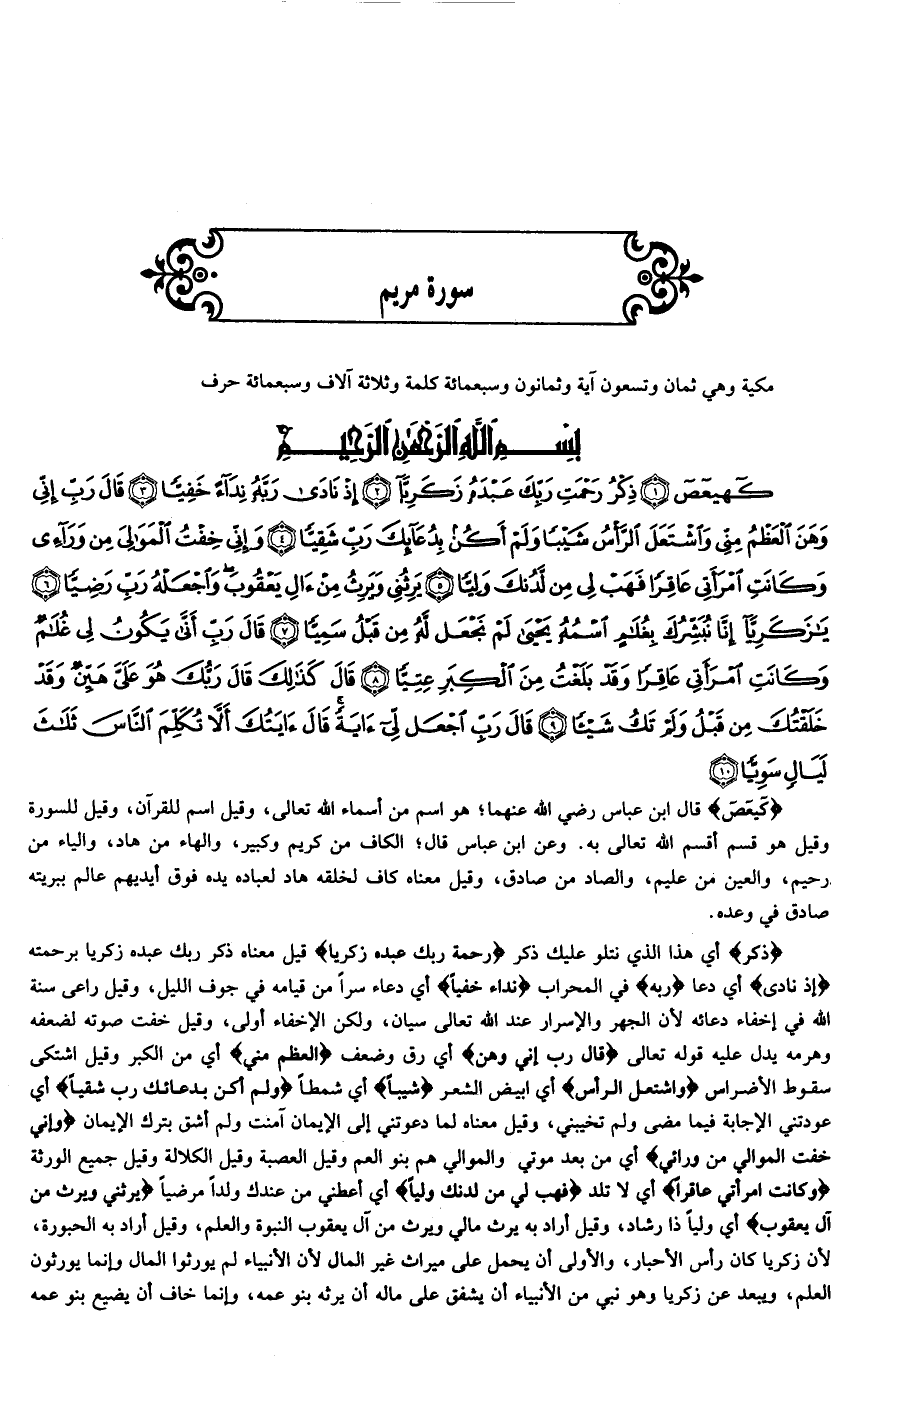 سورة مريم
مكية وهي ثمان وتسعون آية وثمانون وسبعمائة كلمة وثلاثة آلاف وسبعمائة حرف
بِسْمِ اللَّهِ الرَّحْمَٰنِ الرَّحِيمِ
كٓهيعٓصٓ ﴿١﴾ ذِكْرُ رَحْمَتِ رَبِّكَ عَبْدَهُۥ زَكَرِيَّآ ﴿٢﴾ إِذْ نَادَىٰ رَبَّهُۥ نِدَآءً خَفِيًّا ﴿٣﴾ قَالَ رَبِّ إِنِّى
وَهَنَ ٱلْعَظْمُ مِنِّى وَٱشْتَعَلَ ٱلرَّأْسُ شَيْبًا وَلَمْ أَكُنۢ بِدُعَآئِكَ رَبِّ شَقِيًّا ﴿٤﴾ وَإِنِّى خِفْتُ ٱلْمَوَٰلِىَ مِن وَرَآءِى
وَكَانَتِ ٱمْرَأَتِى عَاقِرًا فَهَبْ لِى مِن لَّدُنكَ وَلِيًّا ﴿٥﴾ يَرِثُنِى وَيَرِثُ مِنْ ءَالِ يَعْقُوبَ ۖ وَٱجْعَلْهُ رَبِّ رَضِيًّا ﴿٦﴾
يَٰزَكَرِيَّآ إِنَّا نُبَشِّرُكَ بِغُلَٰمٍ ٱسْمُهُۥ يَحْيَىٰ لَمْ نَجْعَل لَّهُۥ مِن قَبْلُ سَمِيًّا ﴿٧﴾ قَالَ رَبِّ أَنَّىٰ يَكُونُ لِى غُلَٰمٌ
وَكَانَتِ ٱمْرَأَتِى عَاقِرًا وَقَدْ بَلَغْتُ مِنَ ٱلْكِبَرِ عِتِيًّا ﴿٨﴾ قَالَ كَذَٰلِكَ قَالَ رَبُّكَ هُوَ عَلَىَّ هَيِّنٌ وَقَدْ
خَلَقْتُكَ مِن قَبْلُ وَلَمْ تَكُ شَيْـًٔا ﴿٩﴾ قَالَ رَبِّ ٱجْعَل لِّىٓ ءَايَةً ۚ قَالَ ءَايَتُكَ أَلَّا تُكَلِّمَ ٱلنَّاسَ ثَلَٰثَ
لَيَالٍ سَوِيًّا ﴿١٠﴾
﴿كٓهيعٓصٓ﴾ قال ابن عباس رضي الله عنهما؛ هو اسم من أسماء الله تعالى، وقيل اسم للقرآن، وقيل للسورة
وقيل هو قسم أقسم الله تعالى به. وعن ابن عباس قال؛ الكاف من كريم وكبير، والهاء من هاد، والياء من
رحيم، والعين من عليم، والصاد من صادق، وقيل معناه كاف لخلقه هاد لعباده يده فوق أيديهم عالم ببريته
صادق في وعده.
﴿ذكر﴾ أي هذا الذي نتلو عليك ذكر ﴿رحمة ربك عبده زكريا﴾ قيل معناه ذكر ربك عبده زكريا برحمته
﴿إذ نادى﴾ أي دعا ﴿ربه﴾ في المحراب ﴿نداء خفياً﴾ أي دعاء سراً من قيامه في جوف الليل، وقيل راعى سنة
الله في إخفاء دعائه لأن الجهر والإسرار عند الله تعالى سيان، ولكن الإخفاء أولى، وقيل خفت صوته لضعفه
وهرمه يدل عليه قوله تعالى ﴿قال رب إني وهن﴾ أي رق وضعف ﴿العظم مني﴾ أي من الكبر وقيل اشتكى
سقوط الأضراس ﴿واشتعل الرأس﴾ أي ابيض الشعر ﴿شيباً﴾ أي شمطاً ﴿ولم أكن بدعائك رب شقياً﴾ أي
عودتني الإجابة فيما مضى ولم تخيبني، وقيل معناه لما دعوتني إلى الإيمان آمنت ولم أشق بترك الإيمان ﴿وإني
خفت الموالي من ورائي﴾ أي من بعد موتي والموالي هم بنو العم وقيل العصبة وقيل الكلالة وقيل جميع الورثة
﴿وكانت امرأتي عاقراً﴾ أي لا تلد ﴿فهب لي من لدنك ولياً﴾ أي أعطني من عندك ولداً مرضياً ﴿يرثني ويرث من
آل يعقوب﴾ أي ولياً ذا رشاد، وقيل أراد به يرث مالي ويرث من آل يعقوب النبوة والعلم، وقيل أراد به الحبورة،
لأن زكريا كان رأس الأحبار، والأولى أن يحمل على ميراث غير المال لأن الأنبياء لم يورثوا المال وإنما يورثون
العلم، ويبعد عن زكريا وهو نبي من الأنبياء أن يشفق على ماله أن يرثه بنو عمه، وإنما خاف أن يضيع بنو عمه